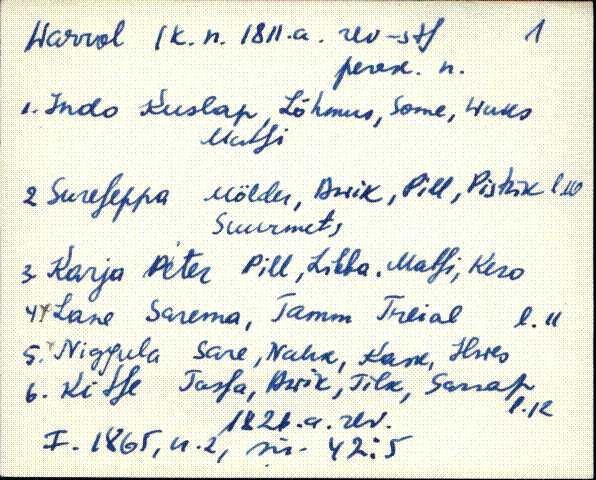 Warrol 1k. n. 1811.a. rev-stf 1
peren. n.
1. Indo Kuslap, Lõhmus, Some, Wuks
Matsi
2 Sureseppa Mölder, Awik, Pill, Pistrik l.10
Suurmets
3. Karja Peter Pill, Libba, Matsi, Kero
4. Lane Sarema, Tamm Treial l. 11
5. Niggula Sare, Nahk, Kask, Ilwes
6. Kitse Tassa, Awik, Tilk, Sarrap
l.12
1826.a. rev.
F. 1865, n.2, sü. 42:5